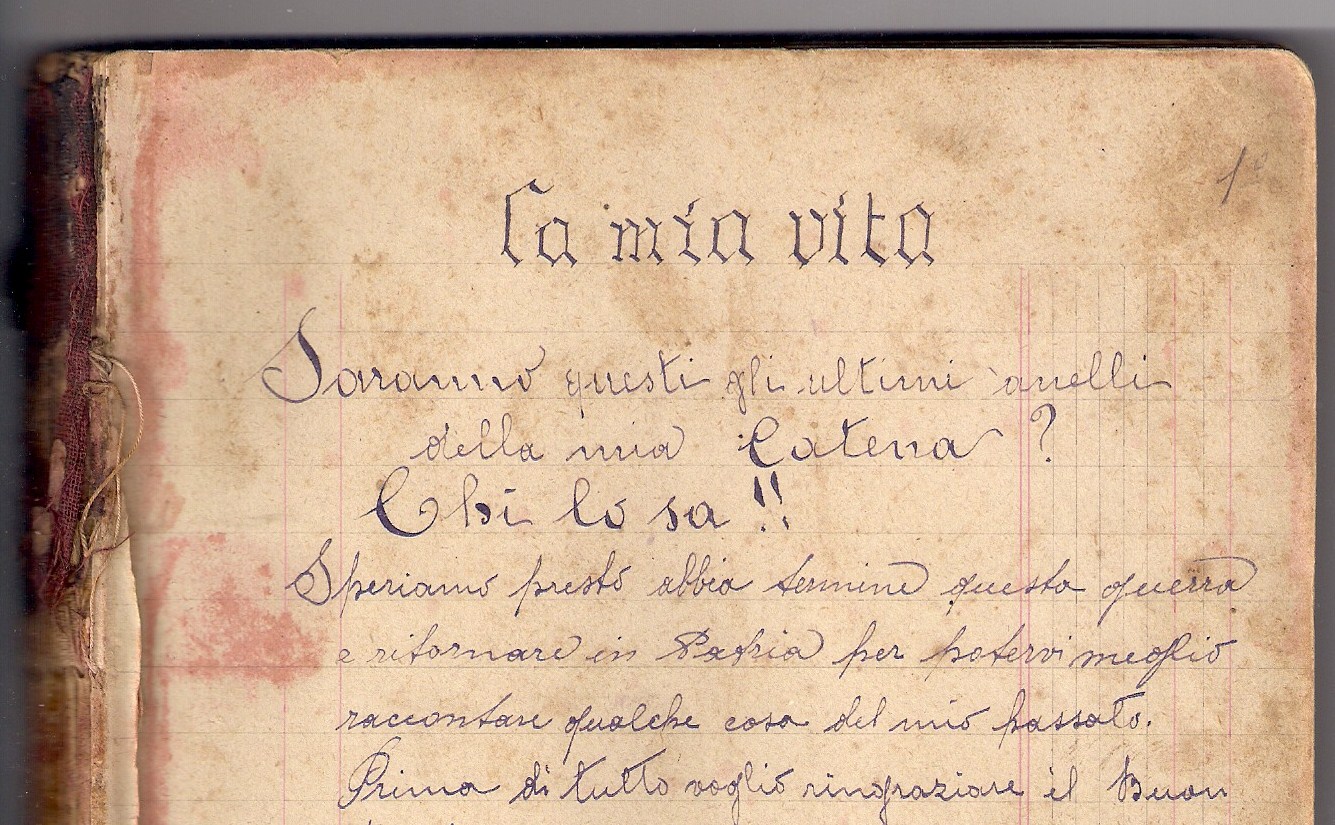 1º
La mia vita
Saranno questi gli ultimi anelli
della mia Catena ?
Chi lo sa !!
Speriamo presto abbia termine questa guerra
e ritornare in Patria per potervi meglio
raccontare qualche cosa del mio passato.
Prima di tutto voglio ringraziare il Buon